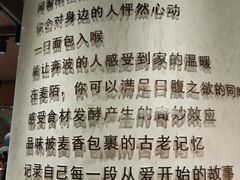 你会对身边的人怦然心动
一口面包入喉
能让奔波的人感受到家的温暖
在麦陌，你可以满足口腹之欲的同
感受食材发酵产生的奇妙效应
品味被麦香包裹的古老记忆
记录自己每一段从爱开始的故事